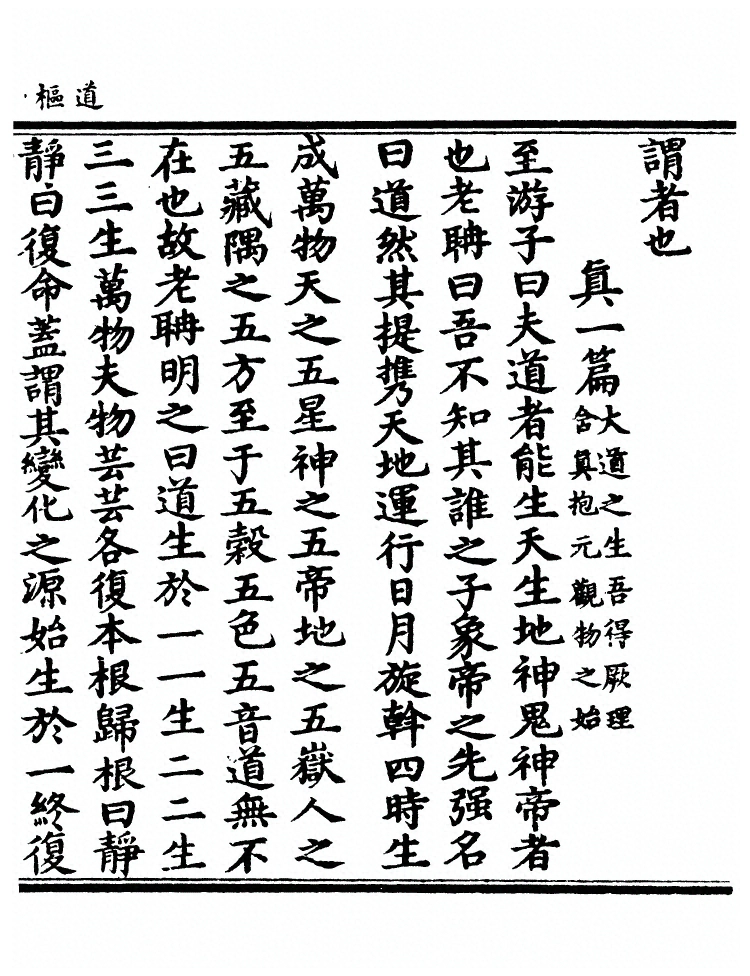 道樞
謂者也
真一篇
大道之生吾得厥理
含真抱元觀物之始
至游子曰夫道者能生天生地神鬼神帝者
也老聃曰吾不知其誰之子象帝之先强名
曰道然其提携天地運行日月旋斡四時生
成萬物天之五星神之五帝地之五嶽人之
五藏隅之五方至于五穀五色五音道無不
在也故老聃明之曰道生於一一生二二生
三三生萬物夫物芸芸各復本根歸根曰靜
靜曰復命蓋謂其變化之源始生於一終復